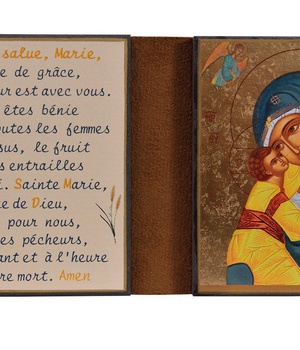 salue, Marie,
e de grâce,
ur est avec vous.
êtes bénie
outes les femmes
sus, le fruit
s entrailles
. Sainte Marie,
e de Dieu,
pour nous,
es pécheurs,
ant et à l'heure
re mort. Amen